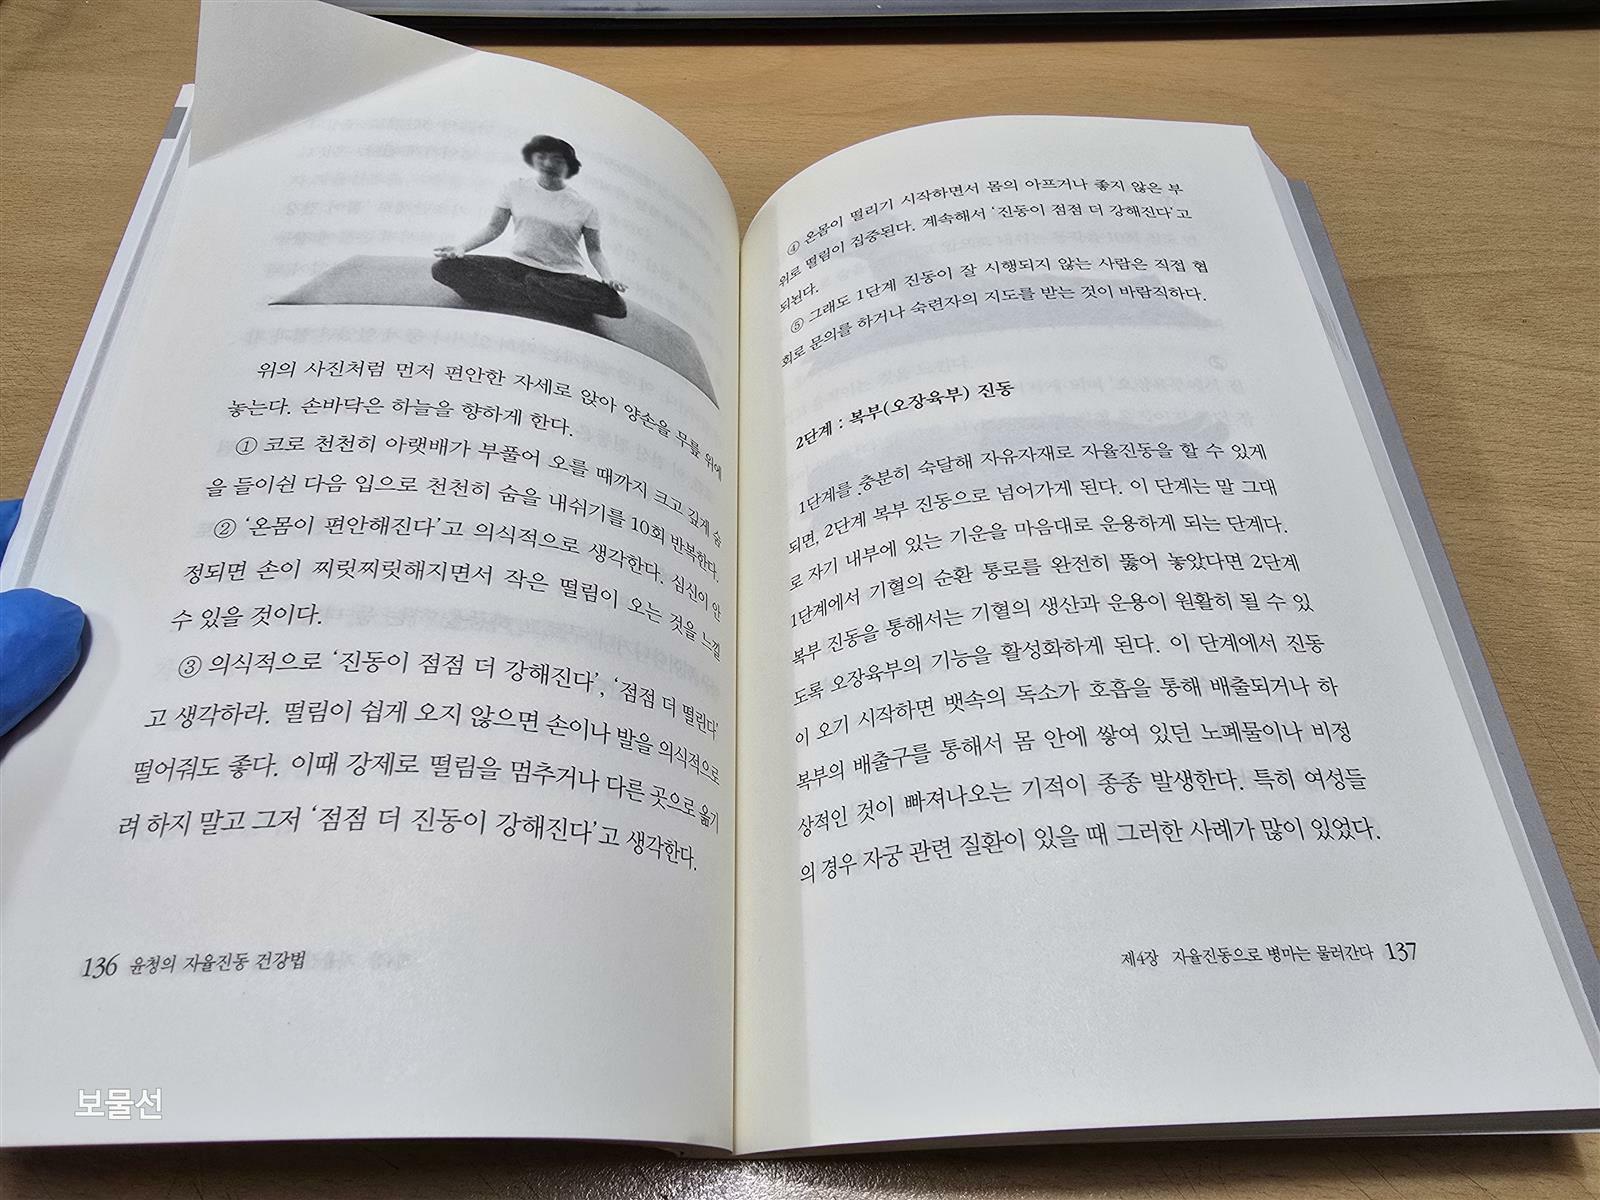 위의 사진처럼 먼저 편안한 자세로 앉아 양손을 무릎 위에
놓는다. 손바닥은 하늘을 향하게 한다.
① 코로 천천히 아랫배가 부풀어 오를 때까지 크고 깊게 숨
을 들이쉰 다음 입으로 천천히 숨을 내쉬기를 10회 반복한다.
② ‘온몸이 편안해진다’고 의식적으로 생각한다. 심신이 안
정되면 손이 찌릿찌릿해지면서 작은 떨림이 오는 것을 느낄
수 있을 것이다.
③ 의식적으로 ‘진동이 점점 더 강해진다’, ‘점점 더 떨린다’
고 생각하라. 떨림이 쉽게 오지 않으면 손이나 발을 의식적으로
떨어줘도 좋다. 이때 강제로 떨림을 멈추거나 다른 곳으로 옮기
려 하지 말고 그저 ‘점점 더 진동이 강해진다’고 생각한다.
136 윤청의 자율진동 건강법
④ 온몸이 떨리기 시작하면서 몸의 아프거나 좋지 않은 부
위로 떨림이 집중된다. 계속해서 ‘진동이 점점 더 강해진다’고
되뇐다.
⑤ 그래도 1단계 진동이 잘 시행되지 않는 사람은 직접 협
회로 문의를 하거나 숙련자의 지도를 받는 것이 바람직하다.
2단계 : 복부(오장육부) 진동
1단계를 충분히 숙달해 자유자재로 자율진동을 할 수 있게
되면, 2단계 복부 진동으로 넘어가게 된다. 이 단계는 말 그대
로 자기 내부에 있는 기운을 마음대로 운용하게 되는 단계다.
1단계에서 기혈의 순환 통로를 완전히 뚫어 놓았다면 2단계
복부 진동을 통해서는 기혈의 생산과 운용이 원활히 될 수 있
도록 오장육부의 기능을 활성화하게 된다. 이 단계에서 진동
이 오기 시작하면 뱃속의 독소가 호흡을 통해 배출되거나 하
복부의 배출구를 통해서 몸 안에 쌓여 있던 노폐물이나 비정
상적인 것이 빠져나오는 기적이 종종 발생한다. 특히 여성들
의 경우 자궁 관련 질환이 있을 때 그러한 사례가 많이 있었다.
제4장 자율진동으로 병마는 물러간다 137
보물선